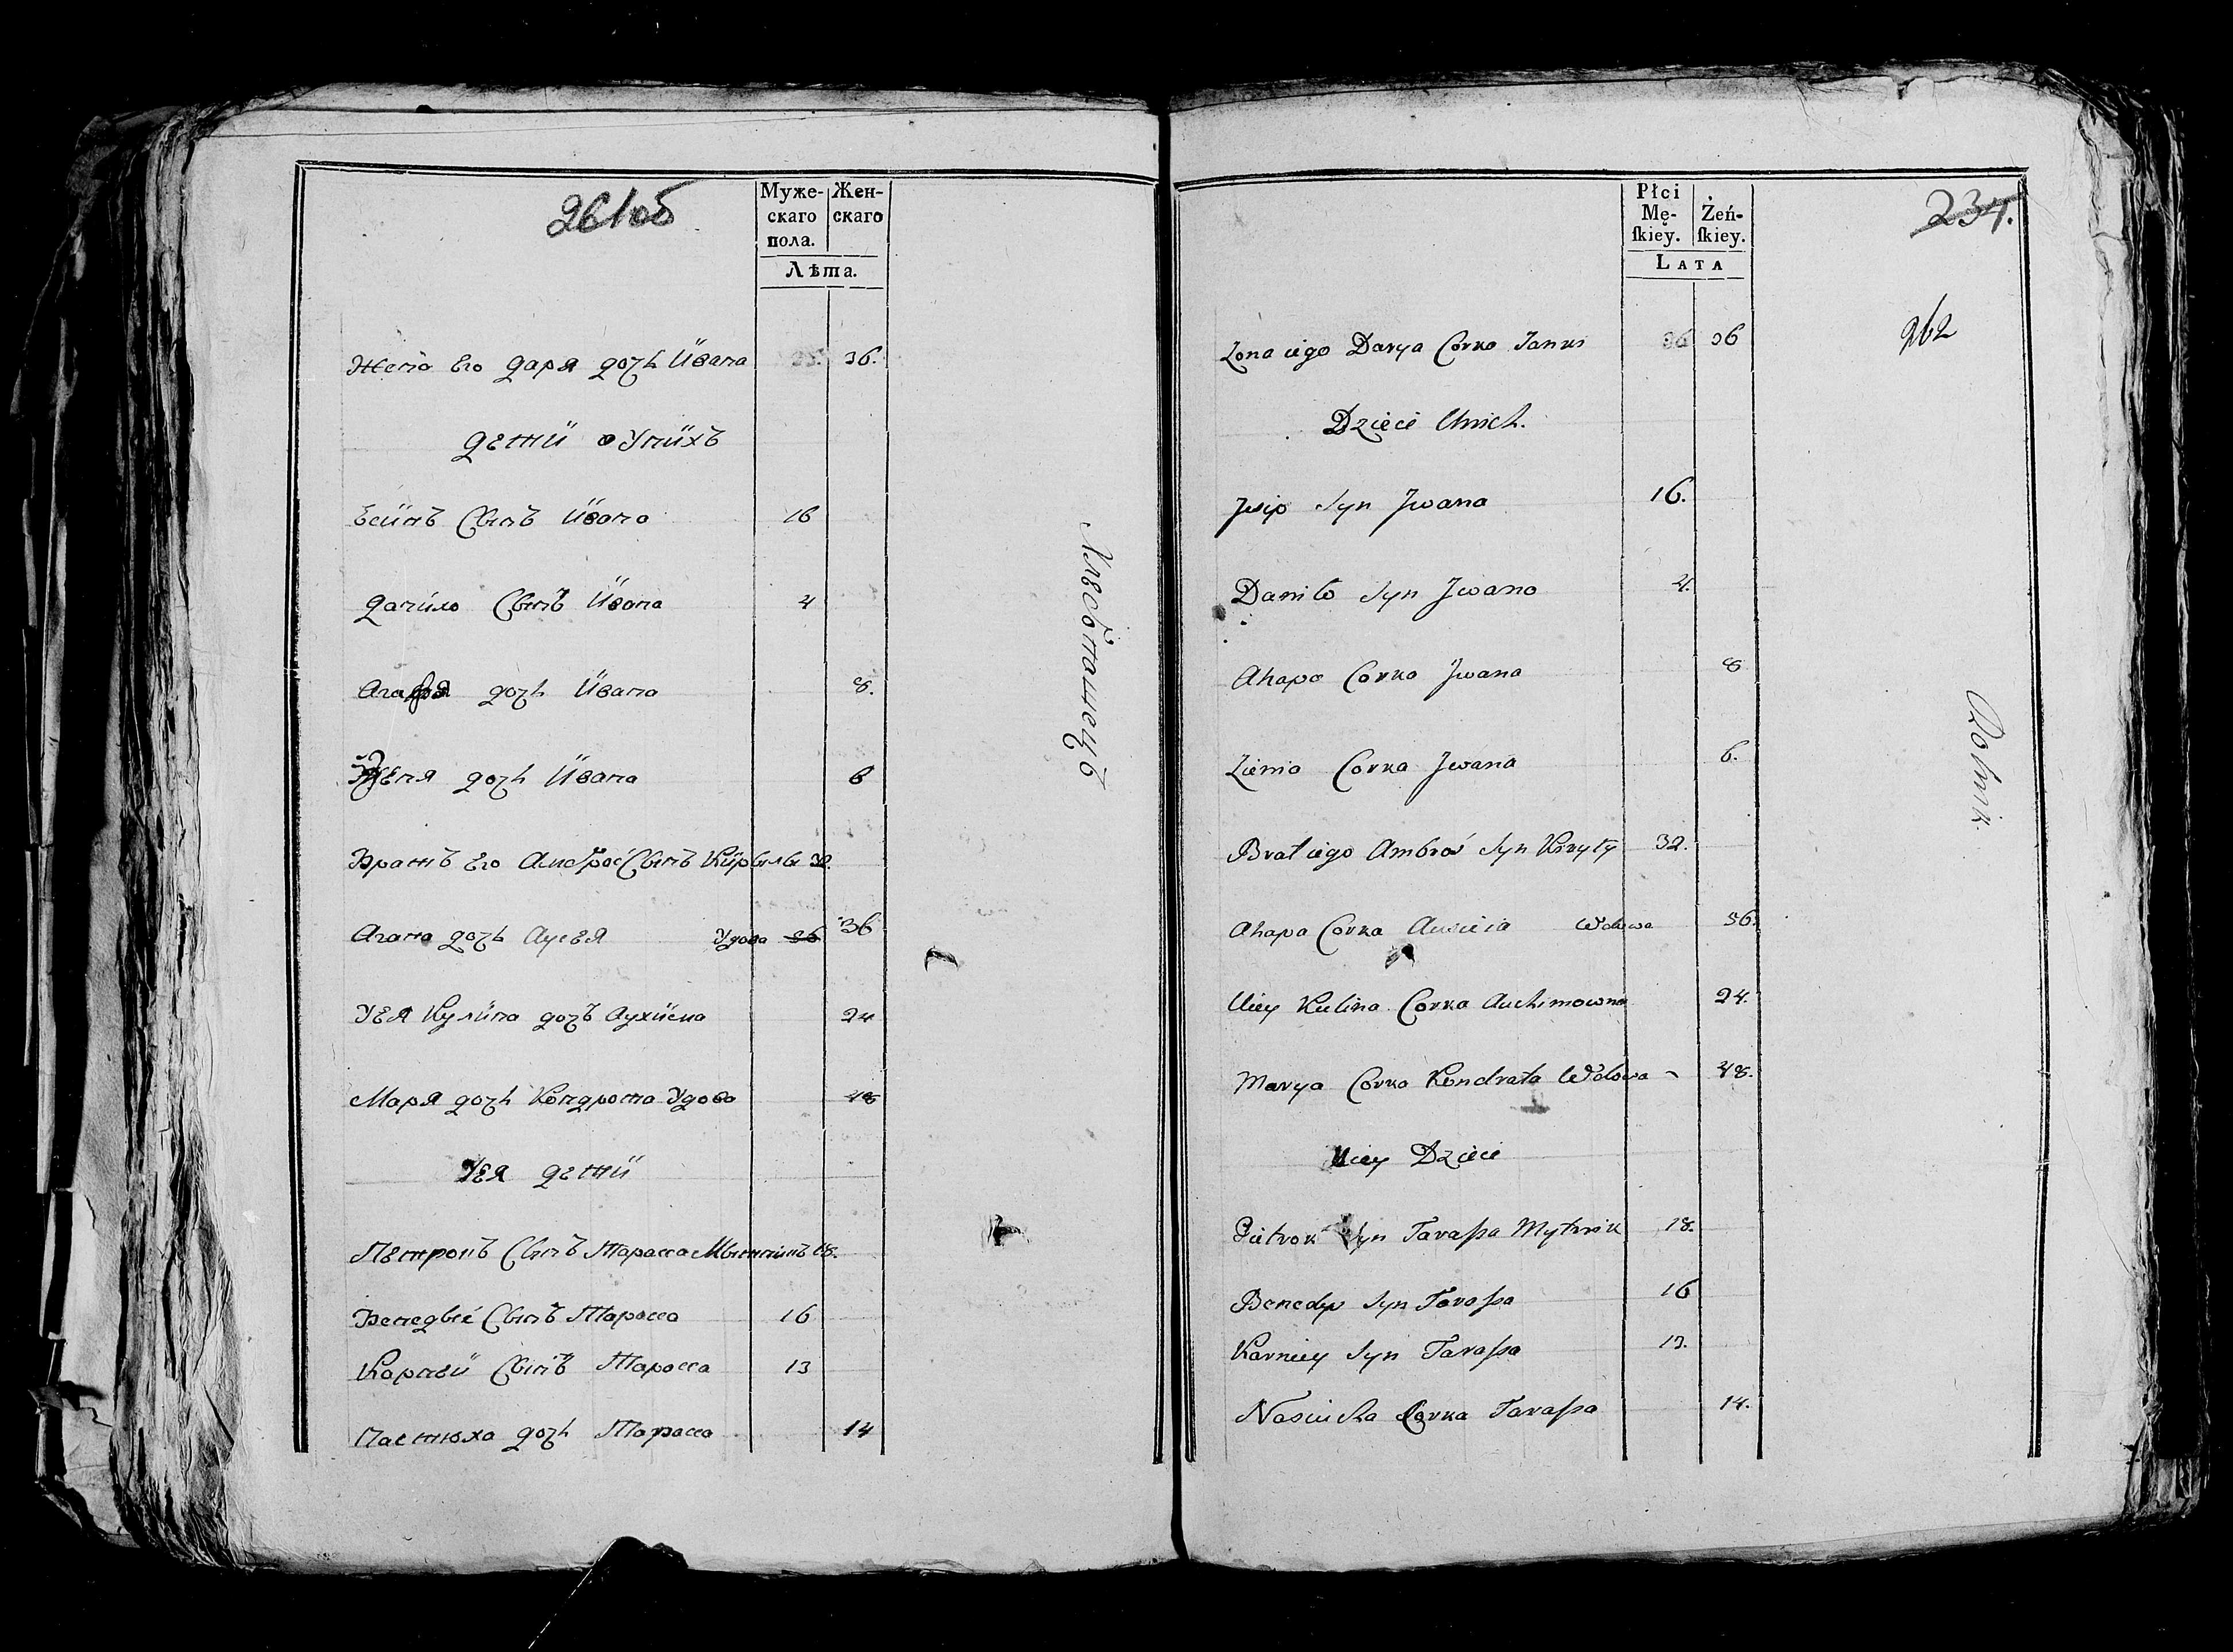 261об
Муже- Жен-
скаго скаго
пола.
Лѣта.
Жена его даря дочь Ивана 36.
дети Уних
Есипъ Сынъ Ивана 16
данило Сынъ Ивана 4
Агафя дочь Ивана 8.
Зеня дочь Ивана 6
Братъ его Амброс Сынъ Кирылы 32.
Агапа дочь Аусея Удова 36 36
Уея Кулина дочъ Аухима 24
Маря дочь Кондрата Удова 48
Уея дети
Петрокъ Сынъ Тарасса Мытникъ 18.
Венедыс Сынъ Тарасса 16
Карней Сынъ Тарасса 13
Настюха дочь Тарасса 14
Хлебопашецъ
Płci
Mę- Żeń-
ſkiey. ſkiey.
LATA
234.
262
Zona iego Darya Corka Iana 36 36
Dzieci Unich.
Jusip Syn Jwana 16.
Daniło Syn Jwana 4.
Ahapa Corka Jwana 8
Zienia Corka Jwana 6.
Brat iego Ambroś Syn Kiryły 32.
Ahapa Corka Ausieia Wdowa 36.
Uiey Kulina Corka Auchimowna 24.
Marya Corka Kondrata Wdowa 48.
Uiey Dzieci
Pietrok Syn Tarassa Mytnik 18.
Benedyś Syn Tarassa 16
Karniey Syn Tarassa 13.
Nasciucha Corka Tarassa 14.
Rolnik